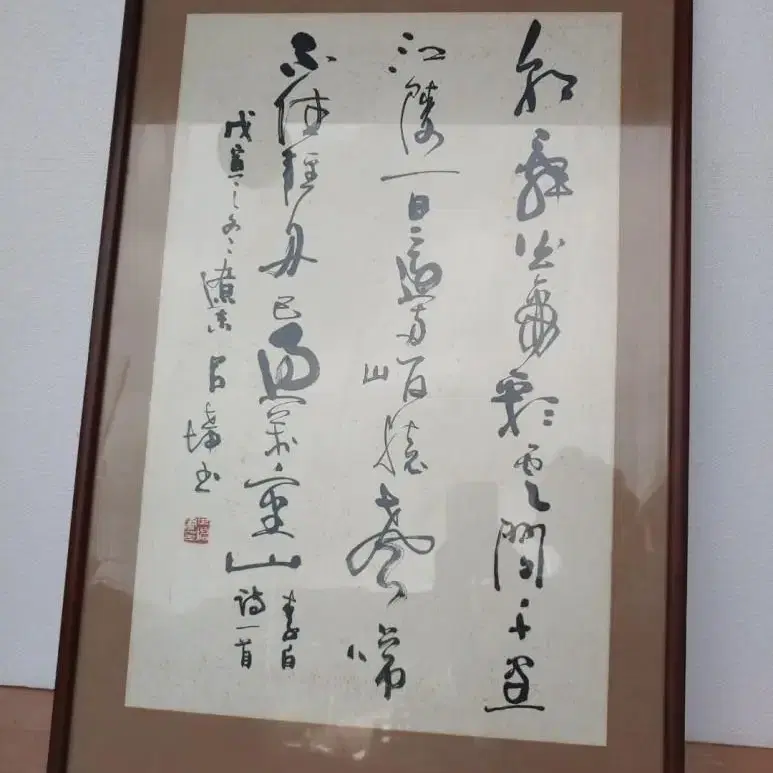 朝辭白帝彩雲間千里
江陵一日還两岸猿聲啼
不住輕舟已過萬重山
李白
詩一首
戊寅之冬 书